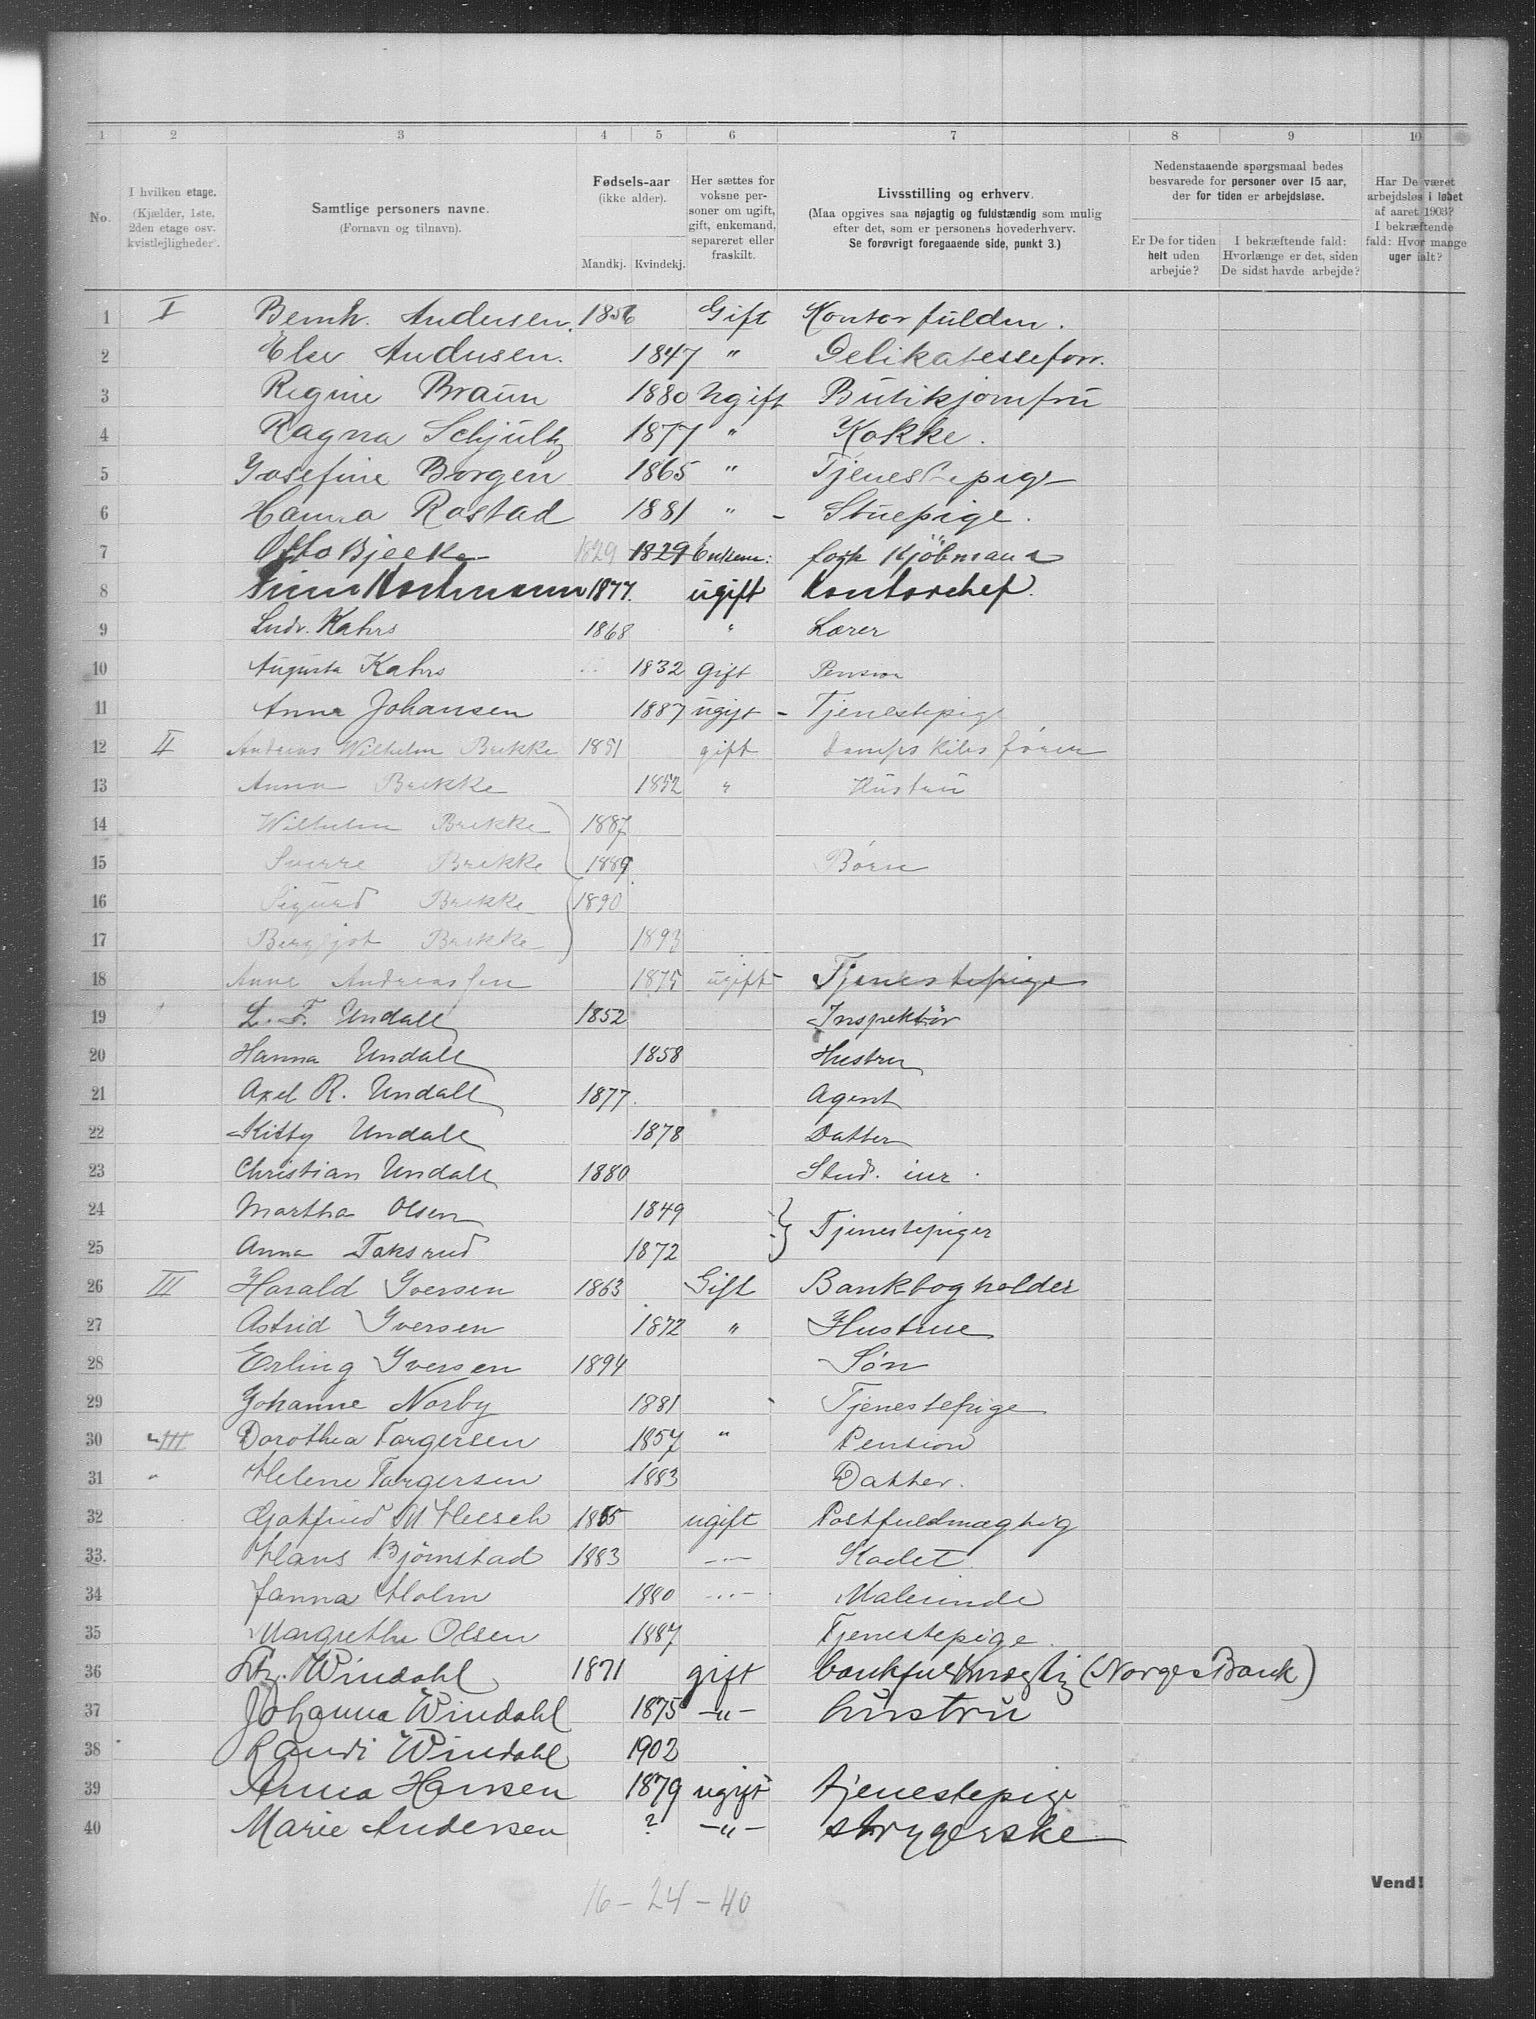 1 2 3 4 5 6 7 8 9 10
No.
I hvilken etage.
(Kjælder, 1ste, 2den etage osv. kvistlejligheder).
Samtlige personers navne.
(Fornavn og tilnavn).
Fødsels-aar
(ikke alder).
Mandkj. Kvindekj.
Her sættes for voksne personer om ugift, gift, enkemand, separeret eller fraskilt.
Livsstilling og erhverv.
(Maa opgives saa nøjagtig og fuldstændig som mulig efter det, som er personens hovederhverv.
Se forøvrigt foregaaende side, punkt 3.)
Nedenstaaende spørgsmaal bedes besvarede for personer over 15 aar, der for tiden er arbejdsløse.
Er De for tiden helt uden arbejde?
I bekræftende fald: Hvorlænge er det, siden De sidst havde arbejde?
Har De været arbejdsløs i løbet af aaret 1903? I bekræftende fald: Hvor mange uger ialt?
1 I Bernh. Andersen. 1856 Gift Kontorfuldm.
2 Else Andersen. 1847 " Delikatesseforr.
3 Regine Braun 1880 Ugift Butikjomfru
4 Ragna Schjultz 1877 " Kokke.
5 Josefine Borgen 1865 " Tjenestepige
6 Hanna Rostad 1881 " - Stuepige.
7 Otto Bjecke 1829 1829 Enkem: forh Kjöbmann
8 1877. ugift Kontorchef.
9 Ludv. Kahrs 1868 " Lærer
10 Augusta Kahrs 1832 Gift Pension
11 Anna Johansen 1887 ugift - Tjenestepige
12 II Andreas Wilhelm Brekke 1851 gift Dampskibsfører
13 Anna Brekke 1852 " Hustru
14 Wilhelm Brekke 1887
15 Sverre Brekke 1889 Børn
16 Sigurd Brekke 1890
17 Bergljot Brekke 1893
18 Anne Andreassen 1875 ugift Tjenestepige
19 L. F. Undall 1852 Inspektör
20 Hanna Undall 1858 Hustru
21 Axel R. Undall 1877. Agent
22 Kitty Undall 1878 Datter
23 Christian Undall 1880 Stud. jur.
24 Martha Olsen 1849
} Tjenestepiger
25 Anna Taksrud 1872
26 III Harald Iversen 1863 Gift Bankbogholder
27 Astrid Iversen 1872 " Hustrue
28 Erling Iversen 1894 Søn
29 Johanne Norby 1881 Tjenestepige
30 III Dorothea Torgersen 1857 " Pension
31 " Helene Torgersen 1883 Datter.
32 Gotfried M Heesch 1865 ugift Postfuldmægtig
33. Hans Bjørnstad 1883 -"- Kadet
34 Janna Holm 1880 -"- Malerinde
35 Margrethe Olsen 1887 Tjenestepige.
36 Windahl 1871 gift bankfuldmægtig (Norges Bank)
37 Johanna Windahl 1875 -"- hustru
38 Randi Windahl 1902
39 Anna Hansen 1879 ugift tjenestepige
40 Marie Andersen ? -"- strygerske
Vend!
16 - 24 - 40